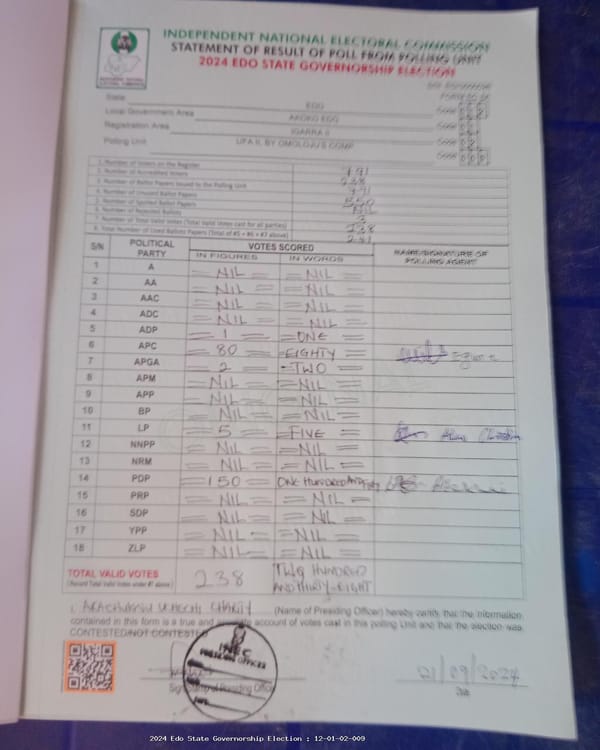 INDEPENDENT NATIONAL ELECTORAL COMMISSION
STATEMENT OF RESULT OF POLL FROM POLLING UNIT
2024 EDO STATE GOVERNORSHIP ELECTION
State EDO Code
Local Government Area AKOKO EDO Code
Registration Area IGARRA II Code
Polling Unit UFA II, BY OMOLOJU'S COMP Code
1. Number of Voters on the Register 791
2. Number of Accredited Voters 238
3. Number of Ballot Papers Issued to the Polling Unit 791
4. Number of Unused Ballot Papers 550
5. Number of Spoiled Ballot Papers NIL
6. Number of Rejected Ballots 3
7. Number of Total Valid Votes (Total Valid Votes cast for all parties) 238
8. Total Number of Used Ballot Papers (Total of #5 + #6 + #7 above) 241
S/N POLITICAL PARTY VOTES SCORED NAME/SIGNATURE OF POLLING AGENT
IN FIGURES IN WORDS
1 A NIL NIL
2 AA NIL NIL
3 AAC NIL NIL
4 ADC NIL NIL
5 ADP 1 ONE
6 APC 80 EIGHTY
7 APGA 2 TWO
8 APM NIL NIL
9 APP NIL NIL
10 BP NIL NIL
11 LP 5 FIVE
12 NNPP NIL NIL
13 NRM NIL NIL
14 PDP 150 ONE HUNDRED AND FIFTY
15 PRP NIL NIL
16 SDP NIL NIL
17 YPP NIL NIL
18 ZLP NIL NIL
TOTAL VALID VOTES 238 TWO HUNDRED
(Record Total Valid Votes under #7 above) AND THIRTY-EIGHT
I, CHARITY (Name of Presiding Officer) hereby certify that the information
contained in this form is a true and accurate account of votes cast in this polling Unit and that the election was
CONTESTED/NOT CONTESTED
INEC
PRESIDING OFFICER
21/09/2024
Signature of Presiding Officer Date
2024 Edo State Governorship Election : 12-01-02-009